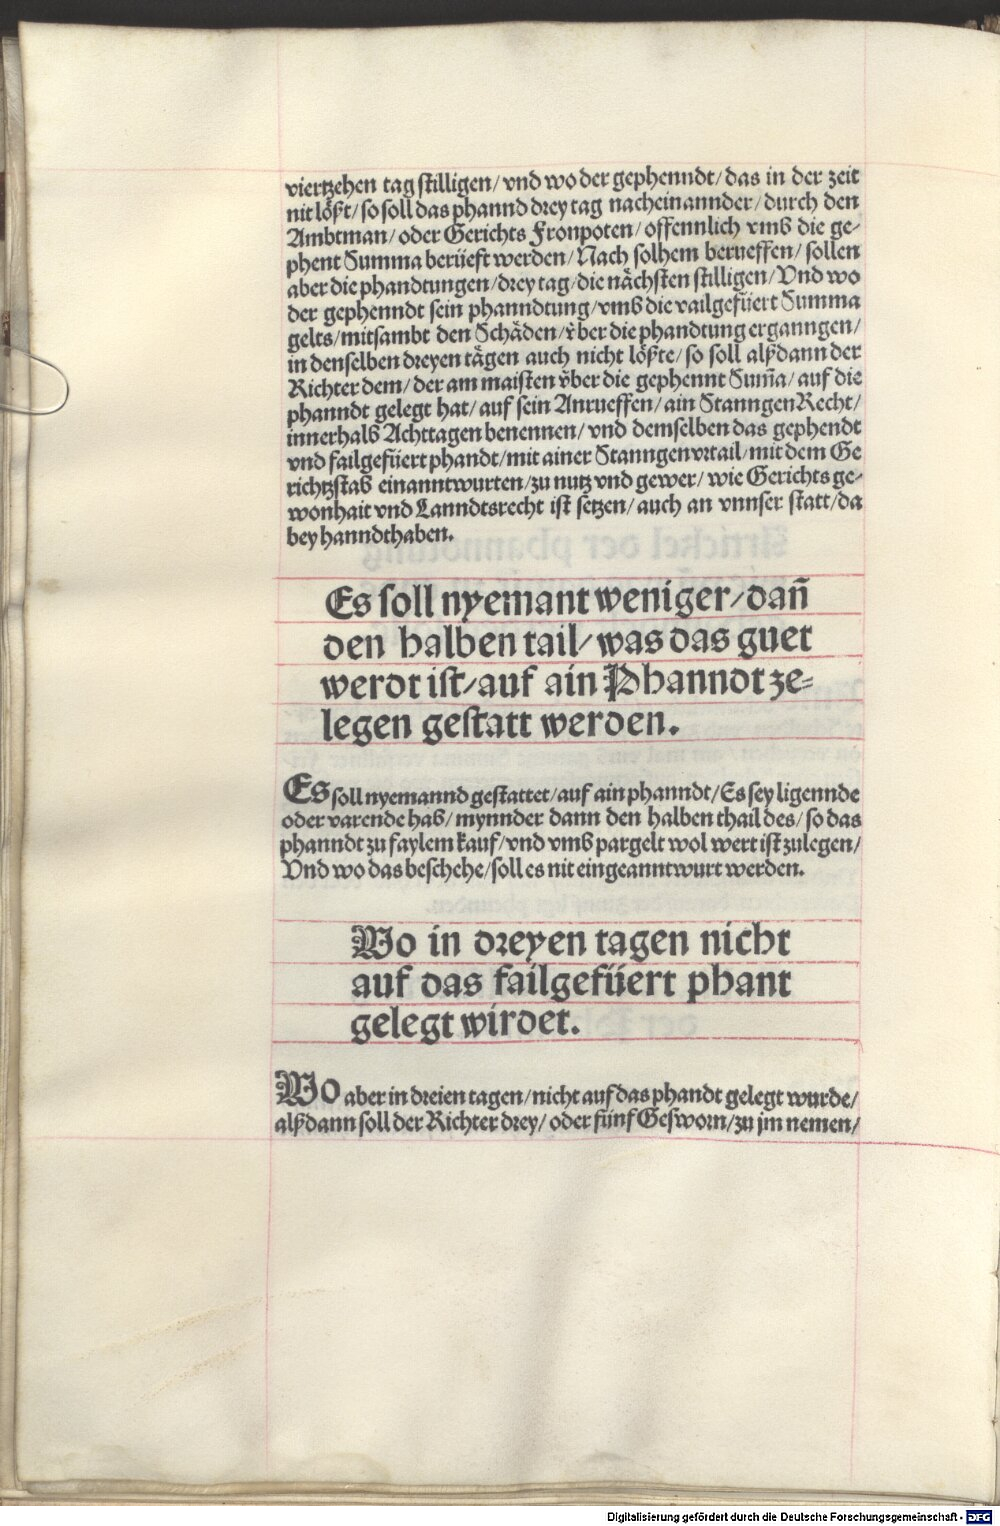 viertzehen tag stilligen/ vnd wo der gephenndt/ das in der zeit
nit lößt/ so soll das phannd drey tag nacheinannder/ durch den
Ambtman/ oder Gerichts Fronpoten/ offennlich vmb die ge-
phent Summa berüeft werden/ Nach solhem berueffen/ sollen
aber die phandtungen/ drey tag/ die nächsten stilligen/ Vnd wo
der gephenndt sein phanndtung/ vmb die vailgefüert Summa
gelts/ mitsambt den Schäden/ v̈ber die phandtung erganngen/
in denselben dreyen tägen auch nicht lößte/ so soll alßdann der
Richter dem/ der am maisten v̈ber die gephennt Sum̄a/ auf die
phanndt gelegt hat/ auf sein Anrueffen/ ain Stanngen Recht/
innerhalb Achttagen benennen/ vnd demselben das gephendt
vnd failgefüert phandt/ mit ainer Stanngen vrtail/ mit dem Ge
richtzstab einanntwurten/ zu nutz vnd gewer/ wie Gerichts ge-
wonhait vnd Lanndtsrecht ist setzen/ auch an vnnser statt/ da
bey hanndthaben.
Es soll nyemant weniger/ dan̄
den halben tail/ was das guet
werdt ist/ auf ain Phanndt ze-
legen gestatt werden.
Es soll nyemannd gestattet/ auf ain phanndt/ Es sey ligennde
oder varende hab/ mynnder dann den halben thail des/ so das
phanndt zu faylem kauf/ vnd vmb pargelt wol wert ist zulegen/
Vnd wo das beschehe/ soll es nit eingeanntwurt werden.
Wo in dreyen tagen nicht
auf das failgefüert phant
gelegt wirdet.
Wo aber in dreien tagen/ nicht auf das phandt gelegt wurde/
alßdann soll der Richter drey/ oder fünf Gesworn/ zu jm nemen/
Digitalisierung gefördert durch die Deutsche Forschungsgemeinschaft - DFG